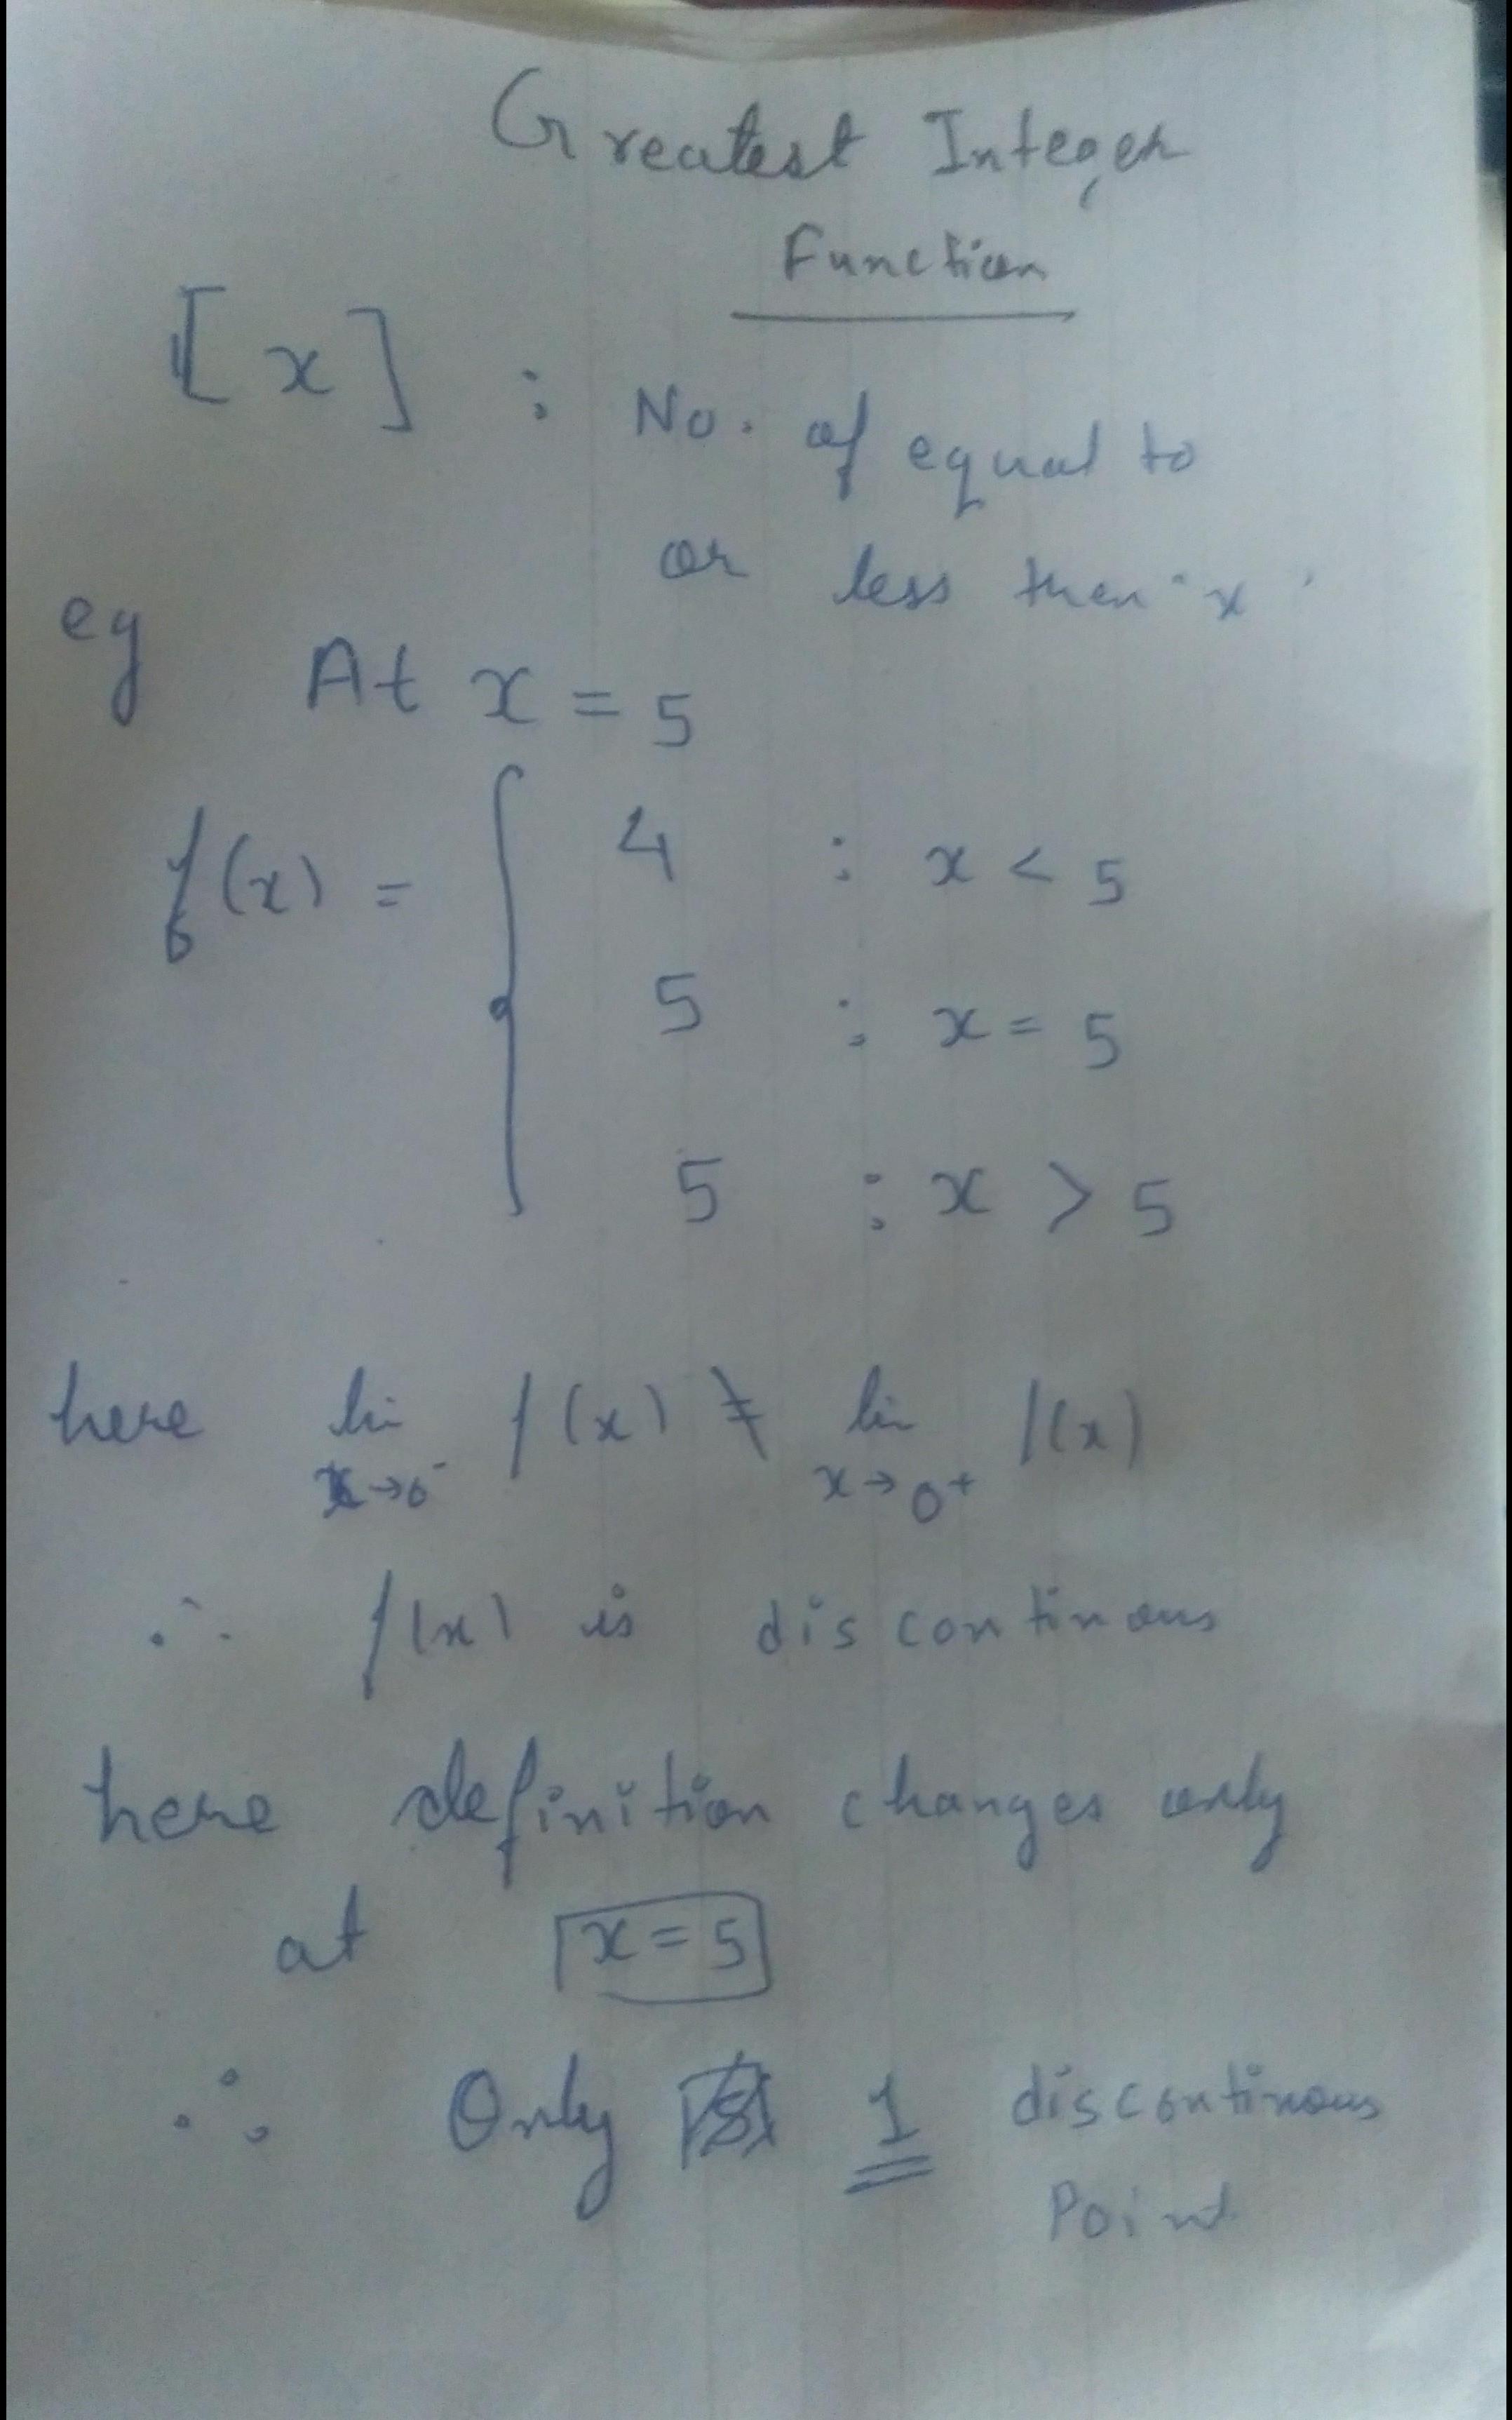 Greatest Integer
Function
[x] : No. of equal to
or less then "x"
eg At x = 5
f(x) = { 4 : x < 5
5 : x = 5
5 : x > 5
here lim x→0⁻ f(x) ≠ lim x→0⁺ f(x)
∴ f(x) is discontinous
here definition changes only
at x = 5
∴ Only 1 discontinous
Point